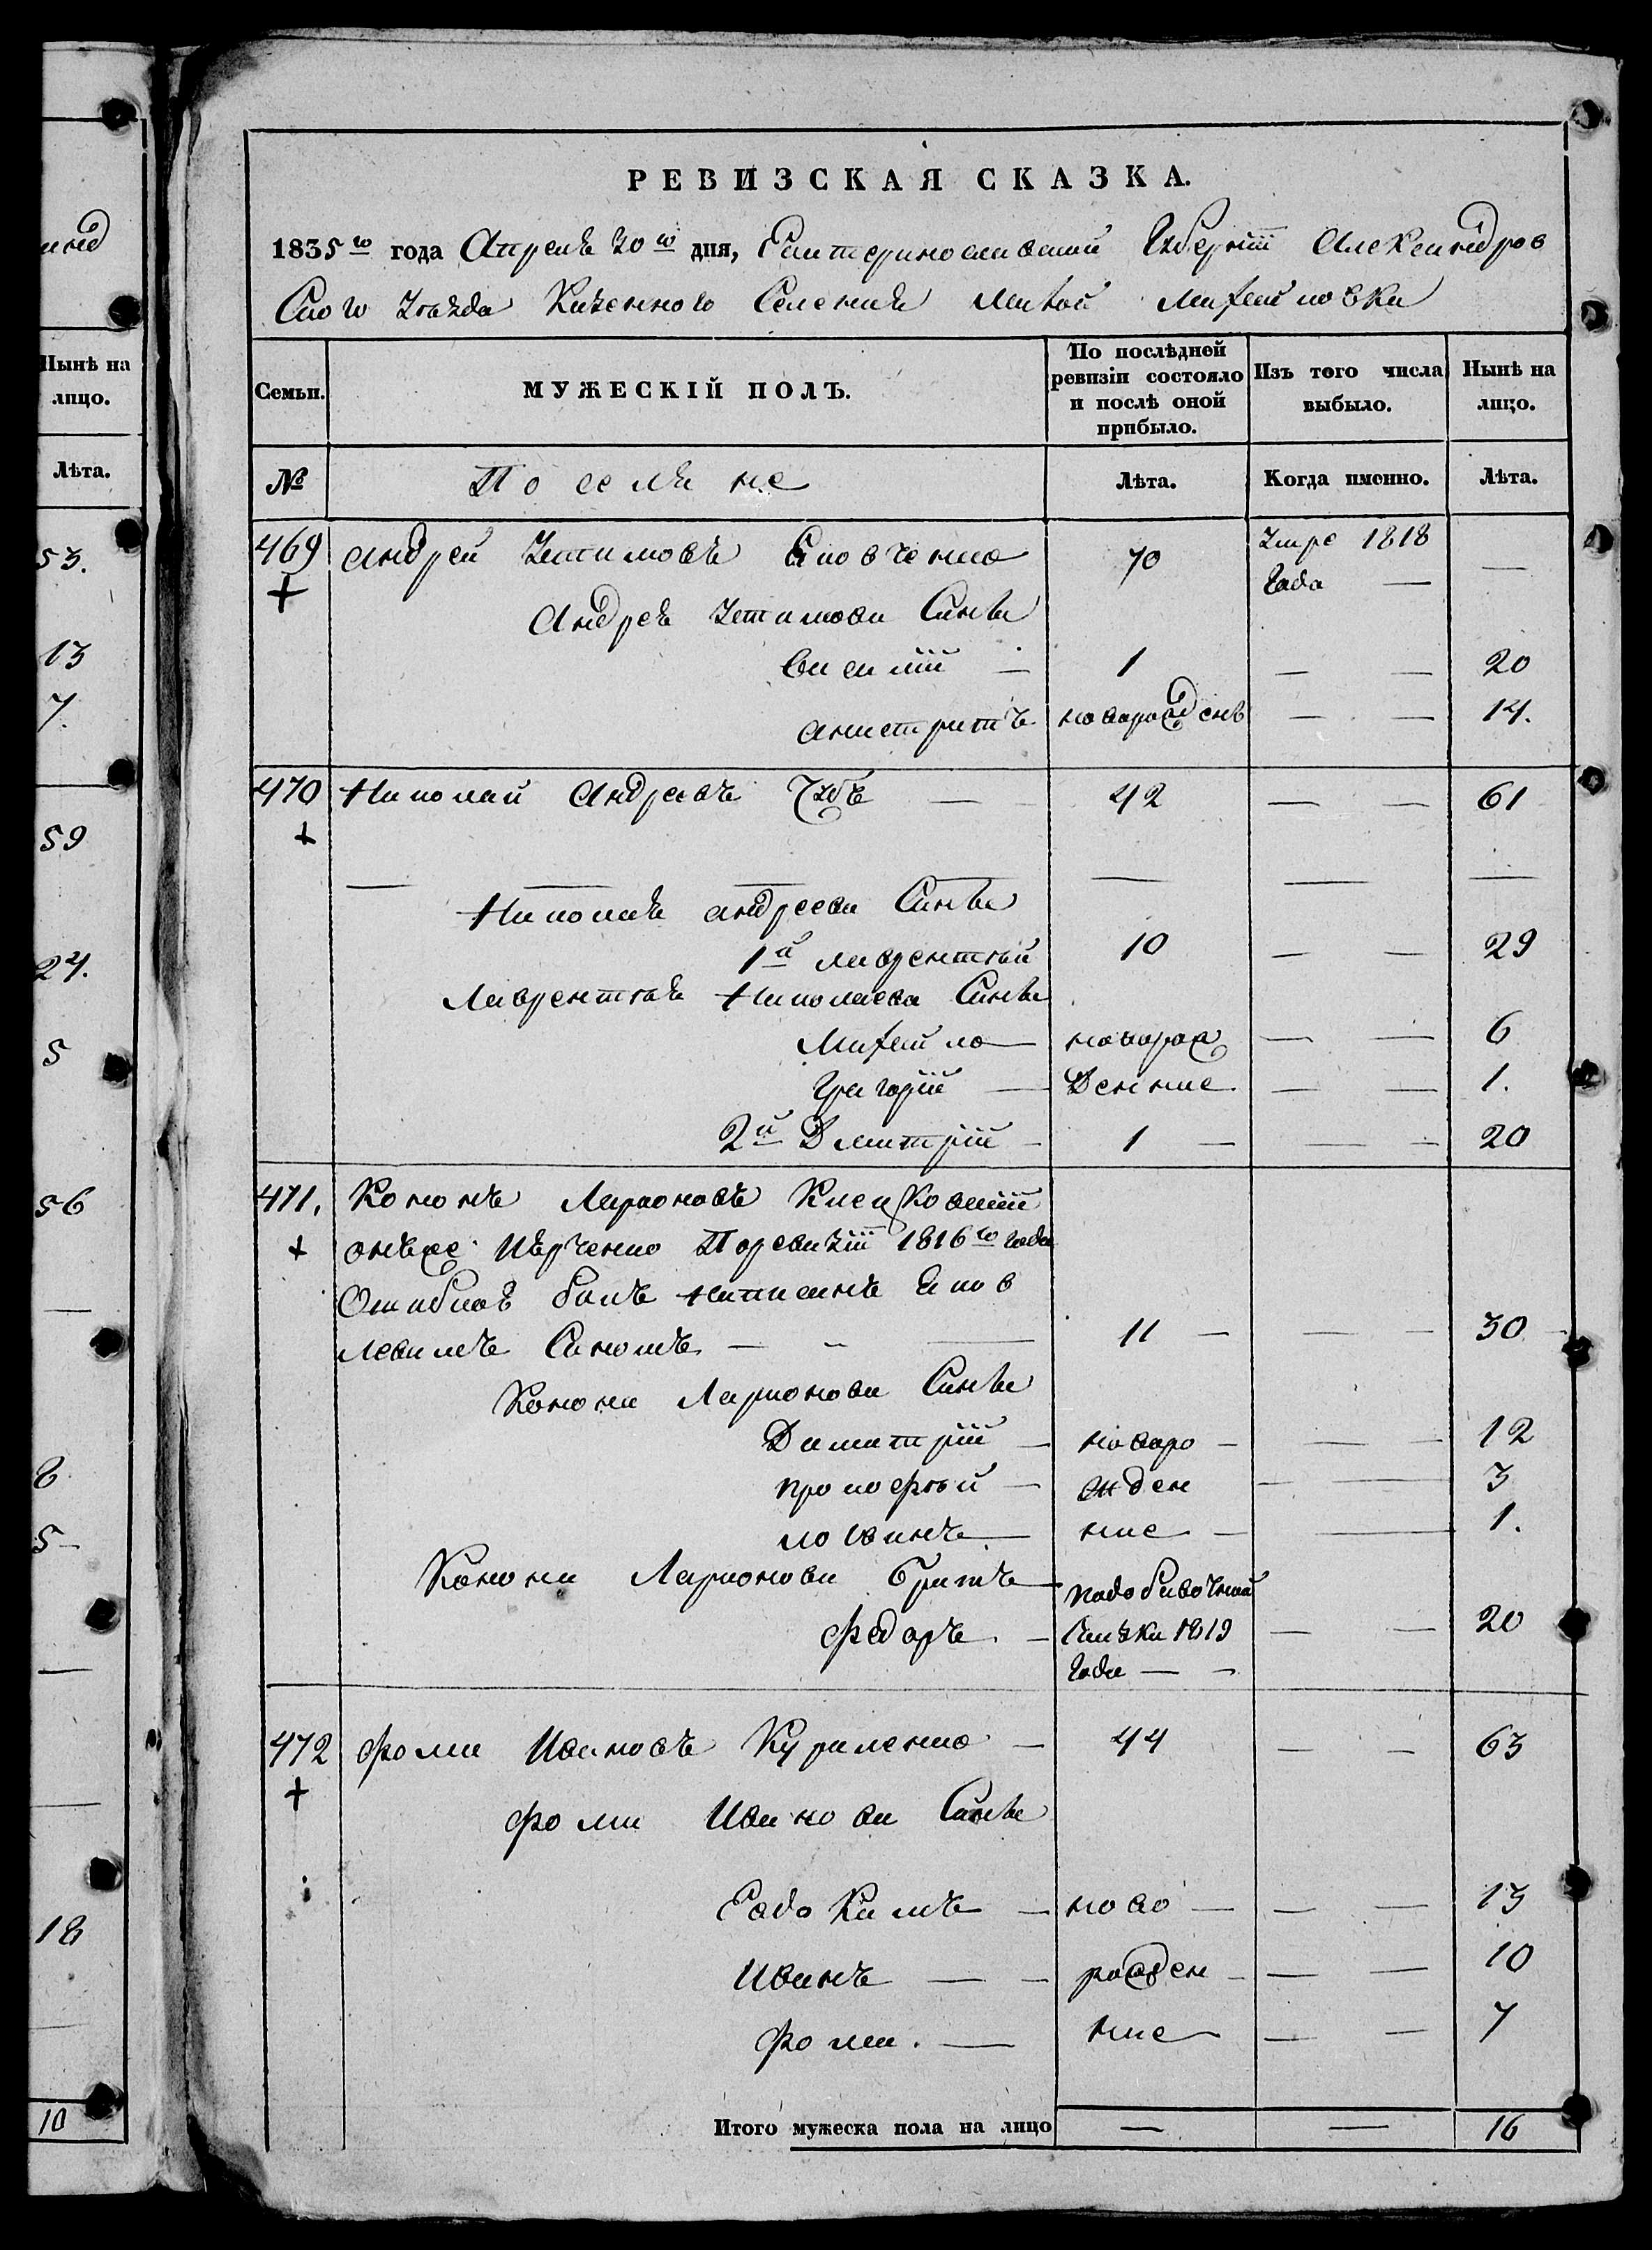 РЕВИЗСКАЯ СКАЗКА.
1835го года Апреля 30го дня, Екатеринославской Губернии Александров
Скаго Уезда Казенного Селения Малой Михайловки
Семьи.
МУЖЕСКІЙ ПОЛЪ.
По послѣдней ревизіи состояло и послѣ оной прибыло.
Изъ того числа выбыло.
Нынѣ на лицо.
№
Поселяне
Лѣта.
Когда именно.
Лѣта.
469 Андрей 70 Умре 1818 Года —
Андрея Сынья
Василій — 1 — — 20
новорожденъ — — 14.
470 Николай Андреевъ Чубъ — 42 — — 61
Николая Андреева Сынья
1й Лаврентій 10 — — 29
Лаврентія Николаева Сынья
Михайло — новорож — — 6
Григорій — Денние — — 1.
2й Дмитрій — 1 — — — 20
471. Кононъ Ларионовъ
онъже Поревизіи 1816го года
Ошибкою былъ Написанъ
Сыномъ — — — 11 — — — 30
Конона Ларионова Сынья
Димитрій — новоро — — — 12
Прокофій — жден — — 3
Логвинъ — ние — — 1.
Конона Ларионова Братъ —
Федоръ. — 1819 Года — — — — 20
472 Фома Ивановъ Куриленко — 44 — — 63
Фомы Иванова Сынья
Евдокимъ — ново — — — 13
Иванъ — — рожден — — — 10
Фома. — ние — — — 7
Итого мужеска пола на лицо — — 16
Нынѣ на лицо.
Лѣта.
53.
13
7.
59
24.
5
56
—
8
5—
—
—
18
—
10